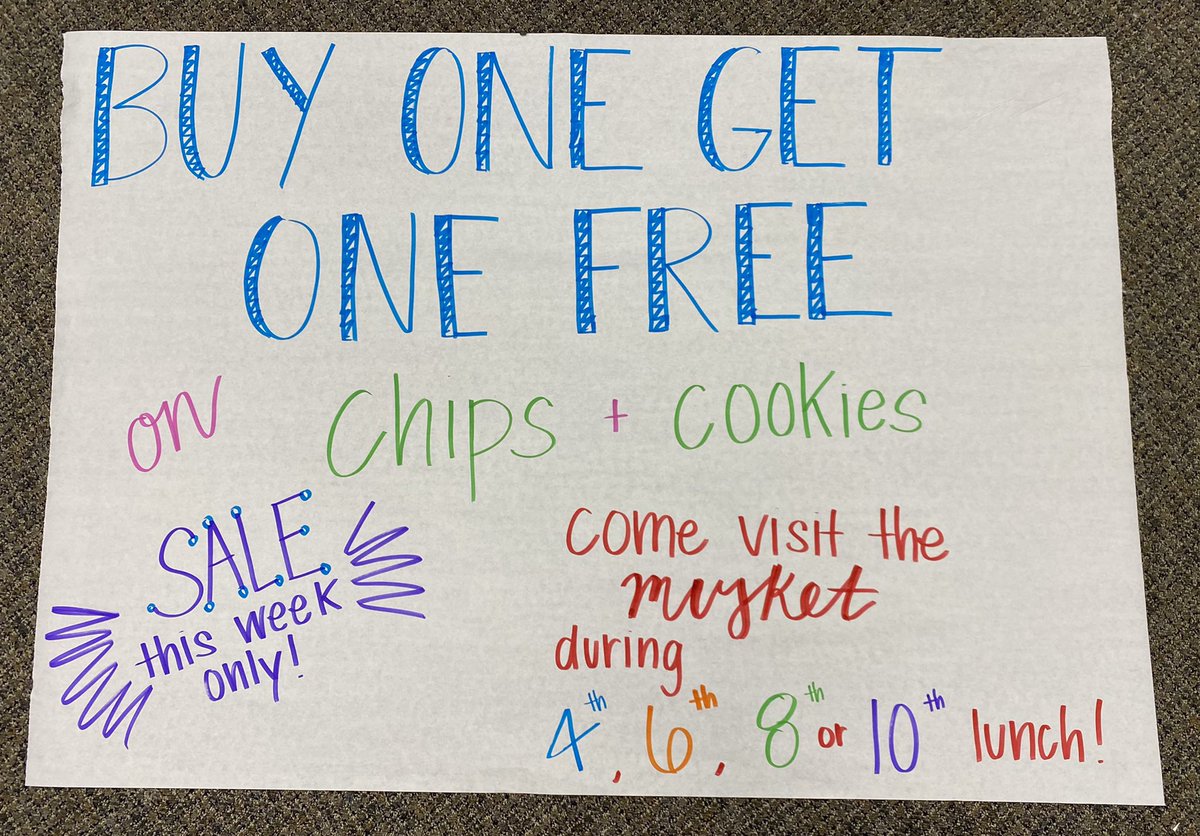 BUY ONE GET
ONE FREE
on chips + cookies
SALE
this week
only!
come visit the
musket
during
4th, 6th, 8th or 10th lunch!